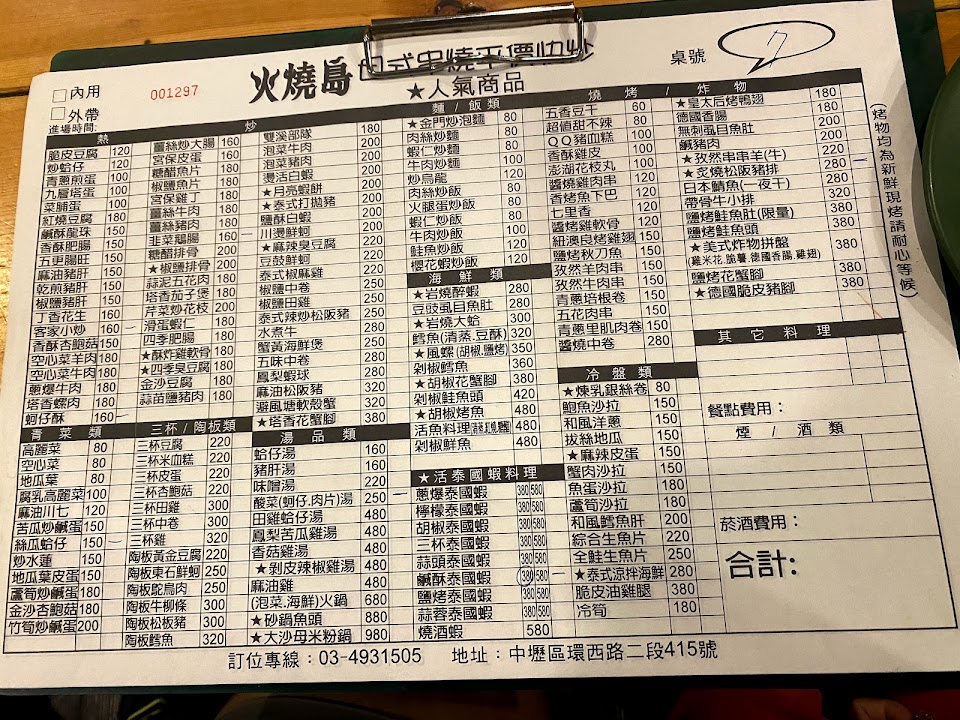 火燒島 日式串燒平價快炒
桌號 7
□內用
□外帶
001297
進場時間:
★人氣商品
熱 炒
脆皮豆腐 120
炒蛤仔 120
青蔥煎蛋 100
九層塔蛋 100
菜脯蛋 100
紅燒豆腐 180
鹹酥龍珠 150
香酥肥腸 150
五更腸旺 150
麻油豬肝 150
乾煎豬肝 150
椒鹽豬肝 150
丁香花生 150
客家小炒 160
香酥杏鮑菇 150
空心菜羊肉 180
空心菜牛肉 180
蔥爆牛肉 180
塔香螺肉 180
蚵仔酥 160
薑絲炒大腸 160
宮保皮蛋 160
糖醋魚片 160
椒鹽魚片 160
宮保雞丁 160
薑絲牛肉 160
薑絲豬肉 160
韭菜鵝腸 160
糖醋排骨 200
★椒鹽排骨 200
蒜泥五花肉 200
塔香茄子煲 200
芹菜炒花枝 200
滑蛋蝦仁 180
四季肥腸 180
★酥炸雞軟骨 180
★四季臭豆腐 180
金沙豆腐 180
蒜苗鹽豬肉 180
雙溪部隊 180
泡菜牛肉 200
泡菜豬肉 200
燙活白蝦 200
★月亮蝦餅 200
★泰式打拋豬 200
鹽酥白蝦 200
川燙鮮蚵 200
★麻辣臭豆腐 220
豆鼓鮮蚵 220
泰式椒麻雞 220
椒鹽中卷 250
椒鹽田雞 250
泰式辣炒松阪豬 250
水煮牛 280
蟹黃海鮮煲 280
五味中卷 280
鳳梨蝦球 280
麻油松阪豬 320
避風塘軟殼蟹 320
★塔香花蟹腳 380
麵 / 飯類
★金門炒泡麵 80
肉絲炒麵 80
蝦仁炒麵 80
牛肉炒麵 100
炒烏龍 120
肉絲炒飯 80
火腿蛋炒飯 80
蝦仁炒飯 80
牛肉炒飯 100
鮭魚炒飯 120
櫻花蝦炒飯 120
海 鮮 類
★岩燒醉蝦 280
豆豉虱目魚肚 280
★岩燒大蛤 300
鱈魚(清蒸.豆酥) 320
★風螺(胡椒.鹽烤) 350
剁椒鱈魚 360
★胡椒花蟹腳 380
剁椒鮭魚頭 420
★胡椒烤魚 480
活魚料理 480
剁椒鮮魚 480
★活泰國蝦料理
蔥爆泰國蝦 380 580
檸檬泰國蝦 380 580
胡椒泰國蝦 380 580
三杯泰國蝦 380 580
蒜頭泰國蝦 380 580
鹹酥泰國蝦 380 580
鹽烤泰國蝦 380 580
蒜蓉泰國蝦 380 580
燒酒蝦 580
燒 烤 / 炸 物
五香豆干 60
超値甜不辣 80
QQ豬血糕 100
香酥雞皮 100
澎湖花枝丸 100
醬燒雞肉串 100
香烤魚下巴 120
七里香 120
醬烤雞軟骨 120
紐澳良烤雞翅 150
鹽烤秋刀魚 150
孜然羊肉串 150
孜然牛肉串 150
青蔥培根卷 150
五花肉串 150
青蔥里肌肉卷 150
醬燒中卷 280
★皇太后烤鴨翅 180
德國香腸 180
無刺虱目魚肚 200
鹹豬肉 200
★孜然串串羊(牛) 220
★炙燒松阪豬排 250
日本鯖魚(一夜干) 250
帶骨牛小排 320
鹽烤鮭魚肚(限量) 380
鹽烤鮭魚頭 380
★美式炸物拼盤 380
(雞米花,脆薯,德國香腸,雞翅)
鹽烤花蟹腳 380
★德國脆皮豬腳 380
(烤物均為新鮮現烤請耐心等候)
冷 盤 類
★煉乳銀絲卷 80
鮑魚沙拉 150
和風洋蔥 150
拔絲地瓜 150
★麻辣皮蛋 150
蟹肉沙拉 150
魚蛋沙拉 180
蘆筍沙拉 180
和風鱈魚肝 200
綜合生魚片 220
全鮭生魚片 250
★泰式涼拌海鮮 280
脆皮油雞腿 380
冷筍 180
其 它 料 理
餐點費用：
煙 / 酒 類
菸酒費用：
合計:
青 菜 類
高麗菜 80
空心菜 80
地瓜葉 80
腐乳高麗菜 100
麻油川七 120
苦瓜炒鹹蛋 150
絲瓜蛤仔 150
炒水蓮 150
地瓜葉皮蛋 150
蘆筍炒鹹蛋 180
金沙杏鮑菇 180
竹筍炒鹹蛋 200
三杯 / 陶板類
三杯豆腐 220
三杯米血糕 220
三杯皮蛋 220
三杯杏鮑菇 220
三杯田雞 300
三杯中卷 300
三杯雞 320
陶板黃金豆腐 220
陶板東石鮮蚵 250
陶板鴕鳥肉 250
陶板牛柳條 300
陶板松板豬 300
陶板鱈魚 320
湯 品 類
蛤仔湯 160
豬肝湯 160
味噌湯 220
酸菜(蚵仔.肉片)湯 250
田雞蛤仔湯 480
鳳梨苦瓜雞湯 480
香菇雞湯 480
★剝皮辣椒雞湯 480
麻油雞 480
(泡菜.海鮮)火鍋 680
★砂鍋魚頭 880
★大沙母米粉鍋 980
訂位專線：03-4931505 地址：中壢區環西路二段415號